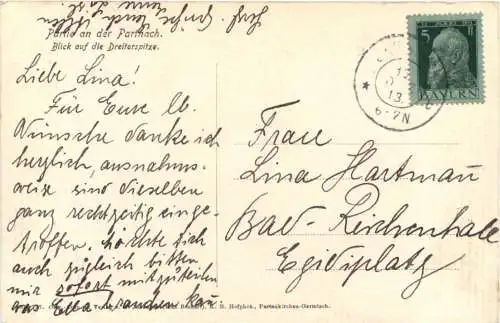 Partie an der Partnach.
Blick auf die Dreitorspitze.
Liebe Lina!
Für Eure lb.
Wünsche danke ich
herzlich, ausnahms-
weise sind dieselben
ganz rechtzeitig einge-
troffen. Möchte Dich
auch zugleich bitten
mir sofort mitzuteilen
was Ella brauchen kann
Herzl. Grüße Euch allen
5
BAYERN
13
6-7N
Frau
Lina Hartmann
Bad-Reichenhall
Egidiplatz
Hofphot., Partenkirchen-Garmisch.